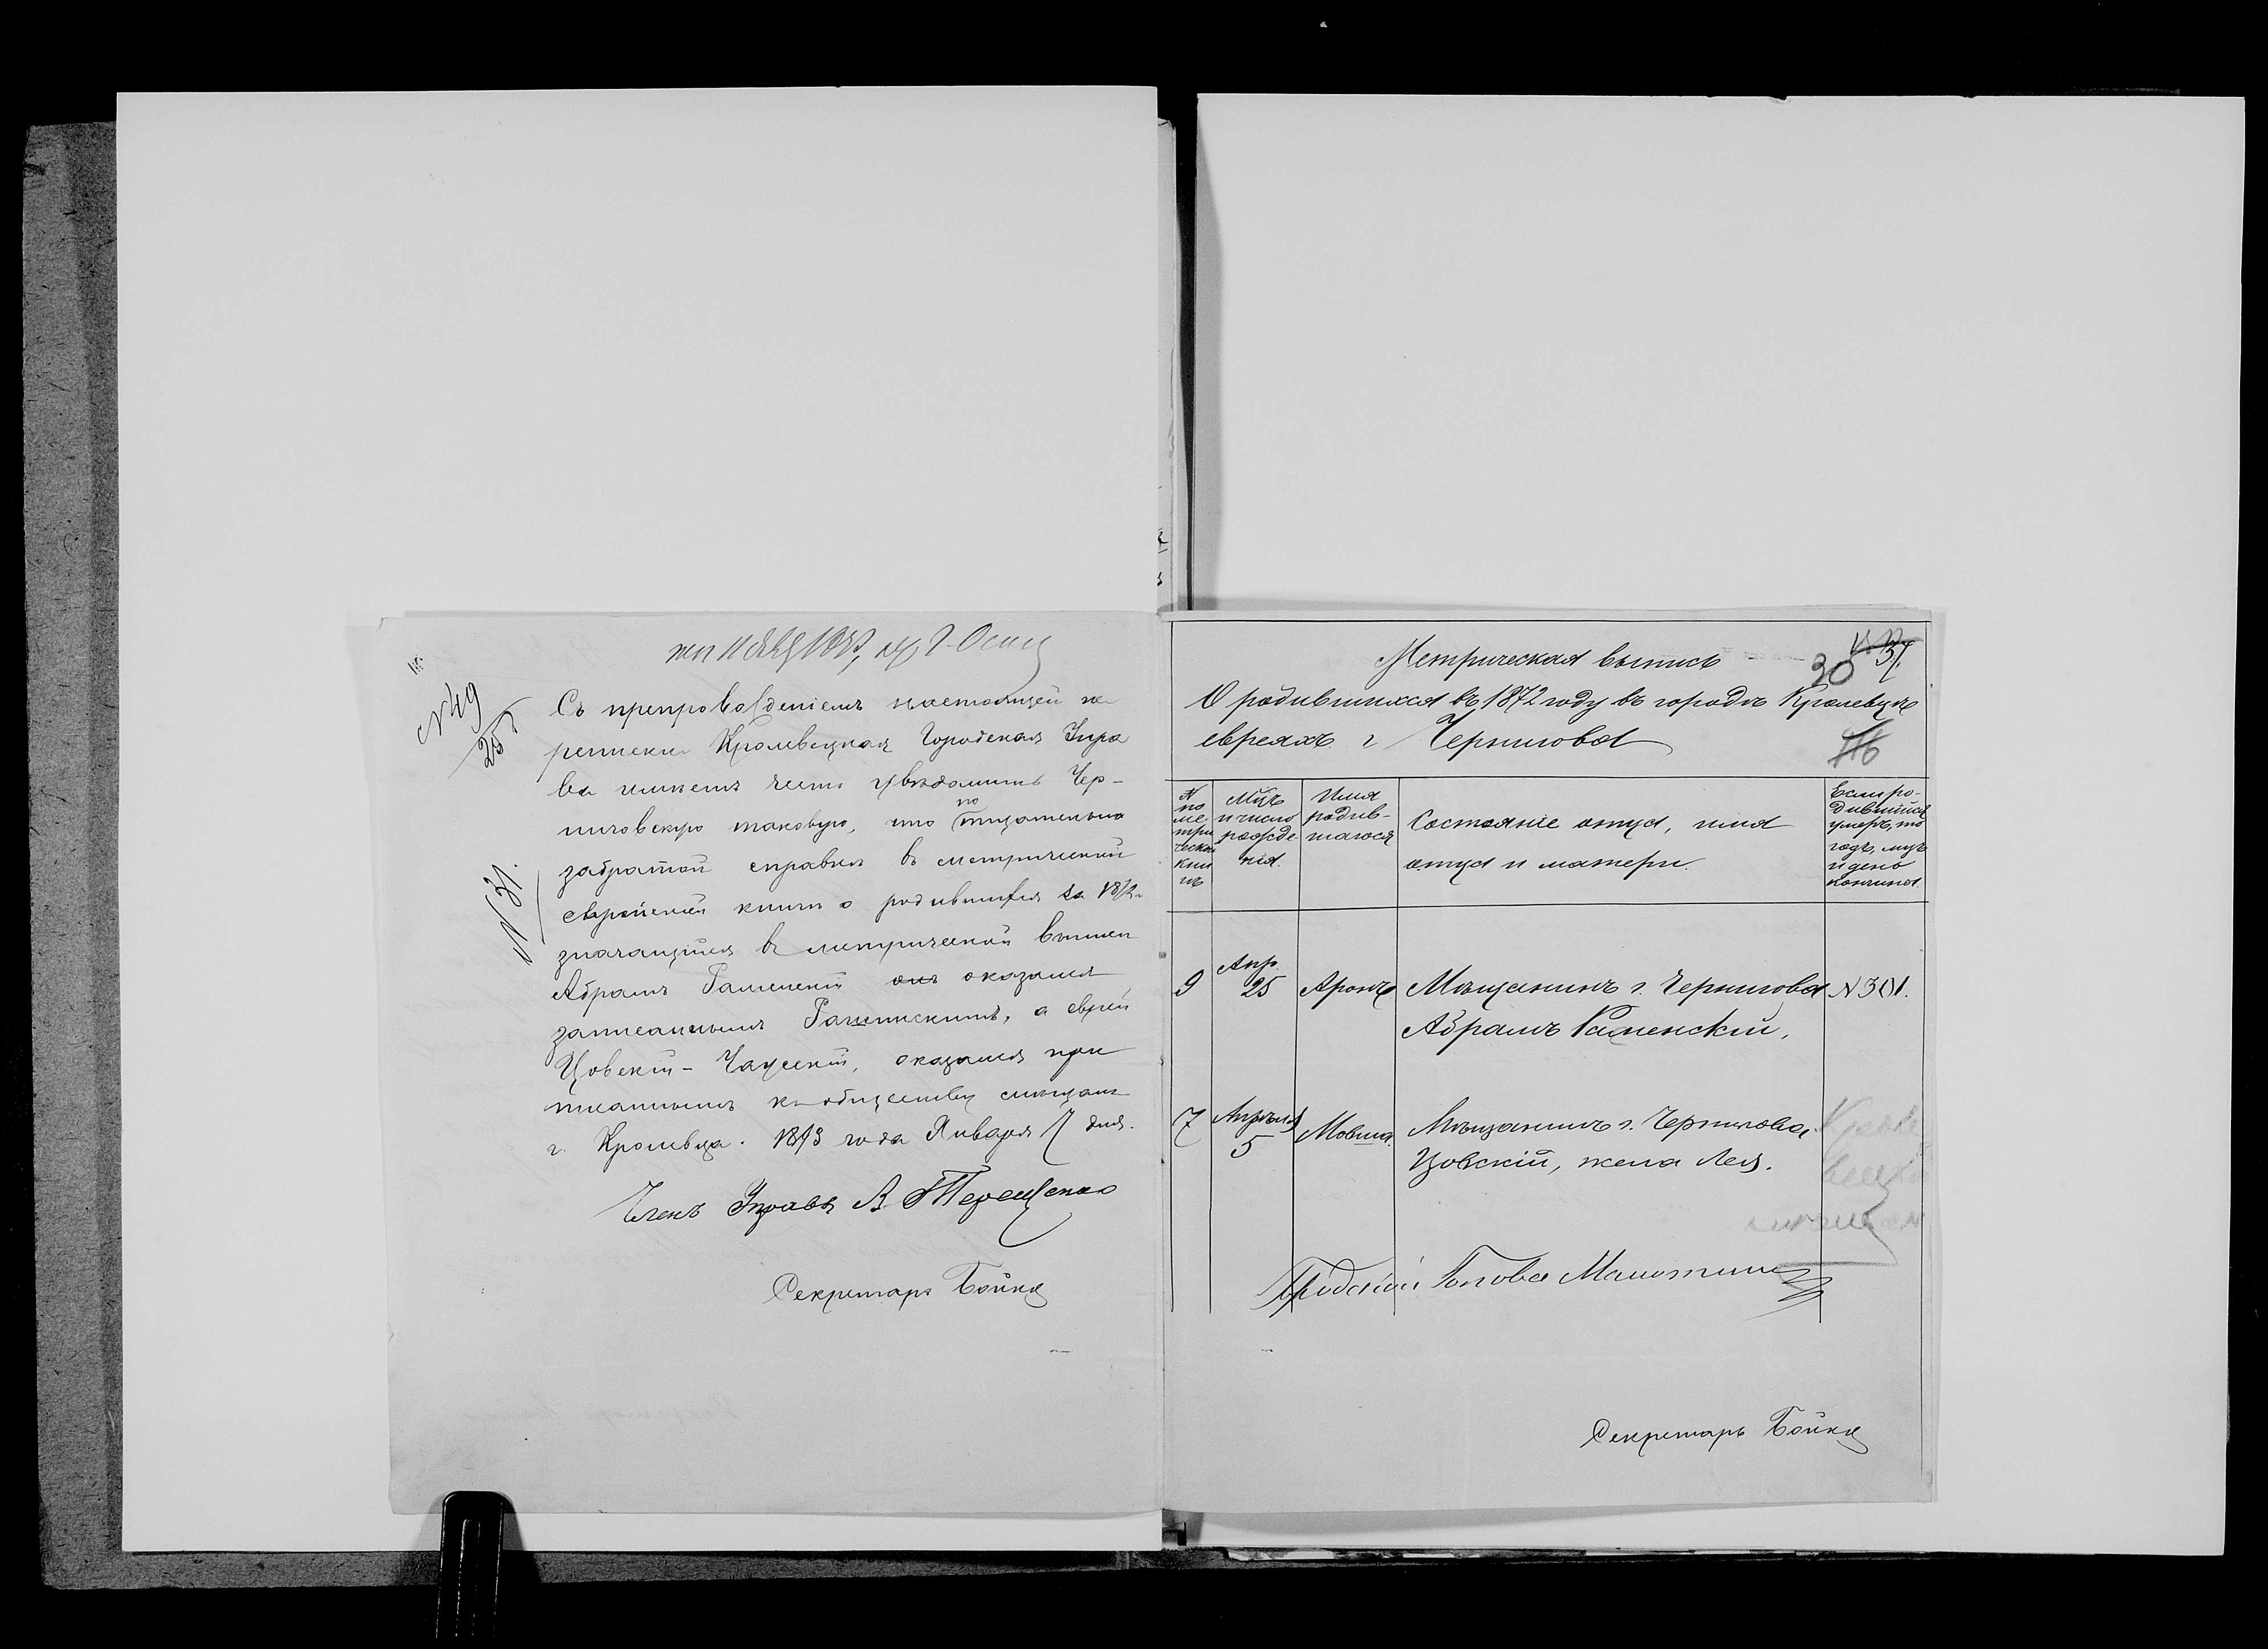 № 49
25 г
№ 31.
Съ препровожденіемъ настоящей пе
реписки Кролевецкая Городская Упра
ва имѣетъ честь увѣдомить Чер-
ниговскую таковую, что по тщательно
забратой справкѣ въ метрической
еврейской книгѣ о родившихся за 1872 г
значащійся въ метрической выписи
Абрамъ оказался
записаннымъ а еврей
Цовскій - Чаусскій, оказался при
писаннымъ къ обществу мѣщанъ
г. Кролевца. 1893 года Января 7 дня.
Членъ Управы В Терещенко
Секретарь Бойко
Метрическая выпись
30 37.
О родившихся въ 1872 году въ городѣ Кролевцѣ
евреяхъ г Чернигова
№ по метрической книгѣ
Мцъ и число рожденія.
Имя родившагося
Состояніе отца, имя
отца и матери.
Если родившійся умеръ, то годъ, мцъ и день кончины
9 Апр. 25 Аронъ Мѣщанинъ г. Чернигова № 301.
Абрамъ Раменскій,
7 Апрѣля 5 Мовша. Мѣщанинъ г. Чернигова
Цовскій, жена Лея.
Городской Голова
Секретарь Бойко